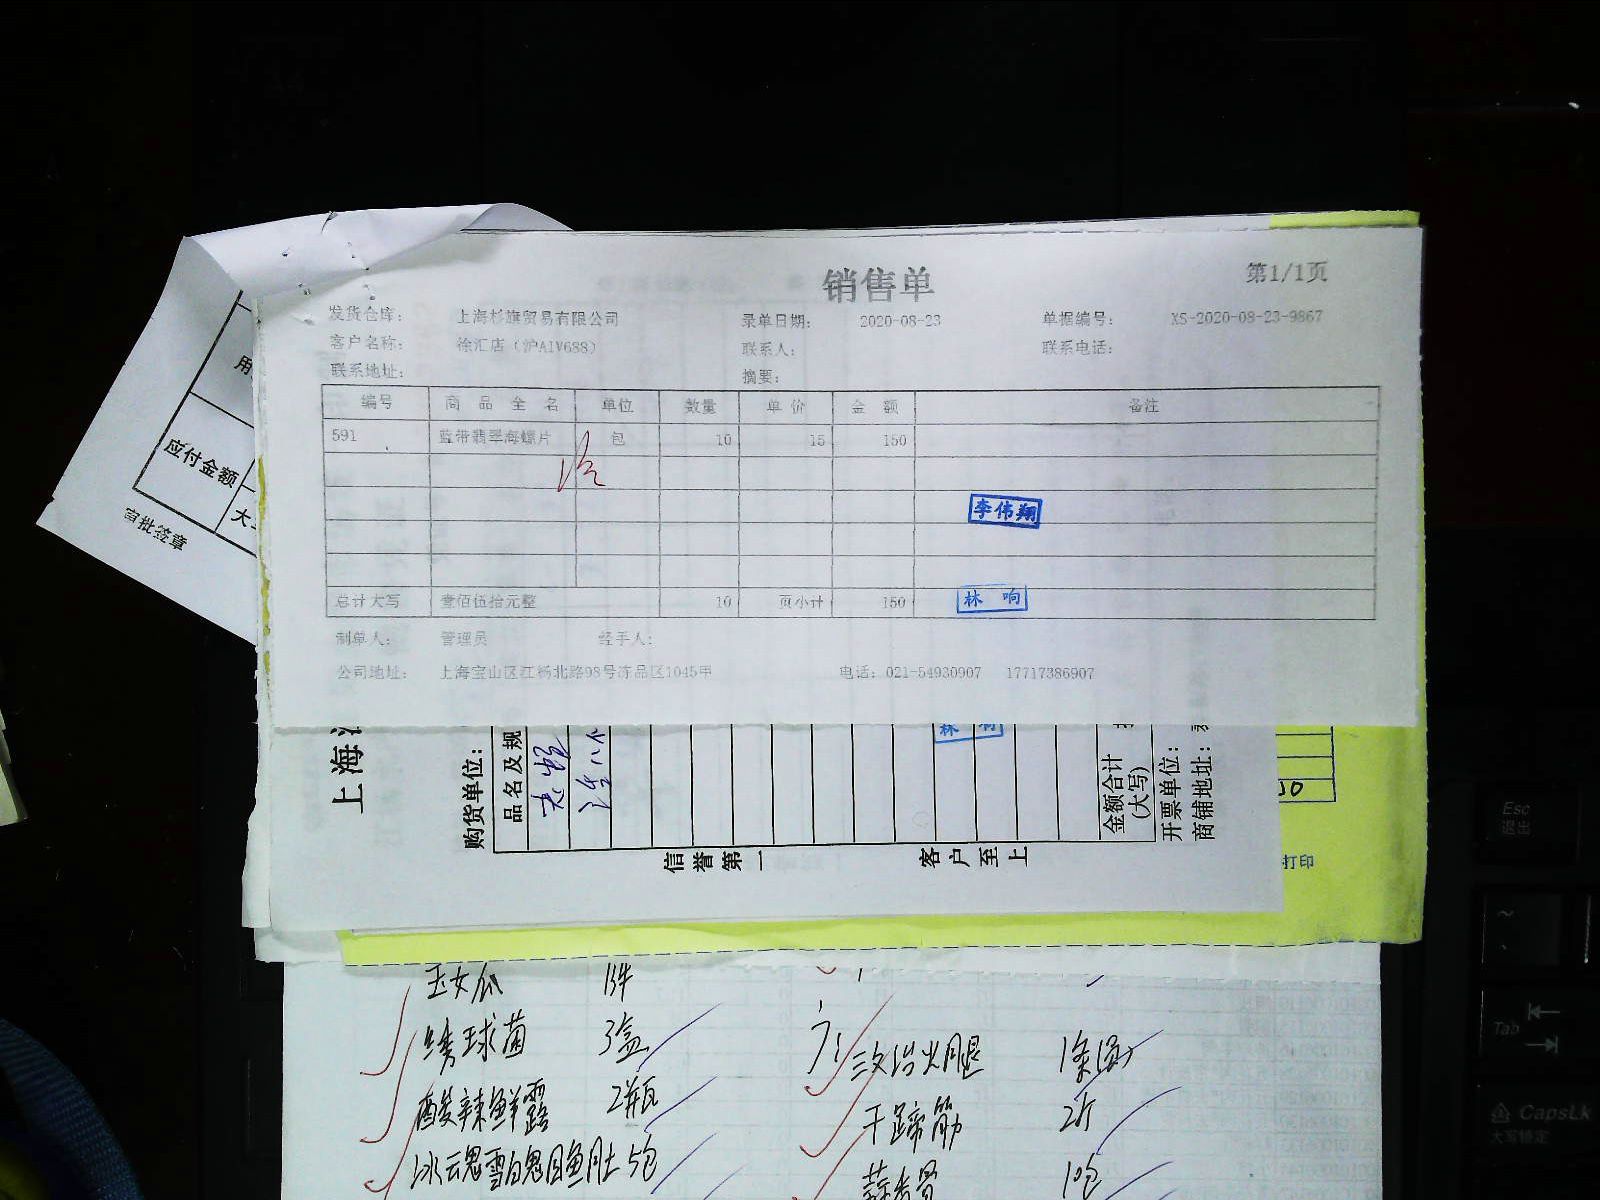 销售单
第1/1页
发货仓库: 上海杉旗贸易有限公司 录单日期: 2020-08-23 单据编号: XS-2020-08-23-9867
客户名称: 徐汇店（沪A1V688） 联系人: 联系电话:
联系地址: 摘要:
编号 商品全名 单位 数量 单价 金额 备注
591 蓝带翡翠海螺片 包 10 15 150
李伟翔
总计大写 壹佰伍拾元整 10 页小计 150 林响
制单人: 管理员 经手人:
公司地址: 上海宝山区江杨北路98号冻品区1045甲 电话: 021-54930907 17717386907
应付金额
审批签章
上海
购货单位:
品名及规
林
信誉第一
客户至上
金额合计
(大写)
开票单位:
商铺地址:
打印
玉女瓜
绣球菌 3盒
三文治火腿 1条
酸辣鲜露 2瓶
干蹄筋 2斤
5包
蒜香骨 10包
Esc
Tab
CapsLk
大写锁定